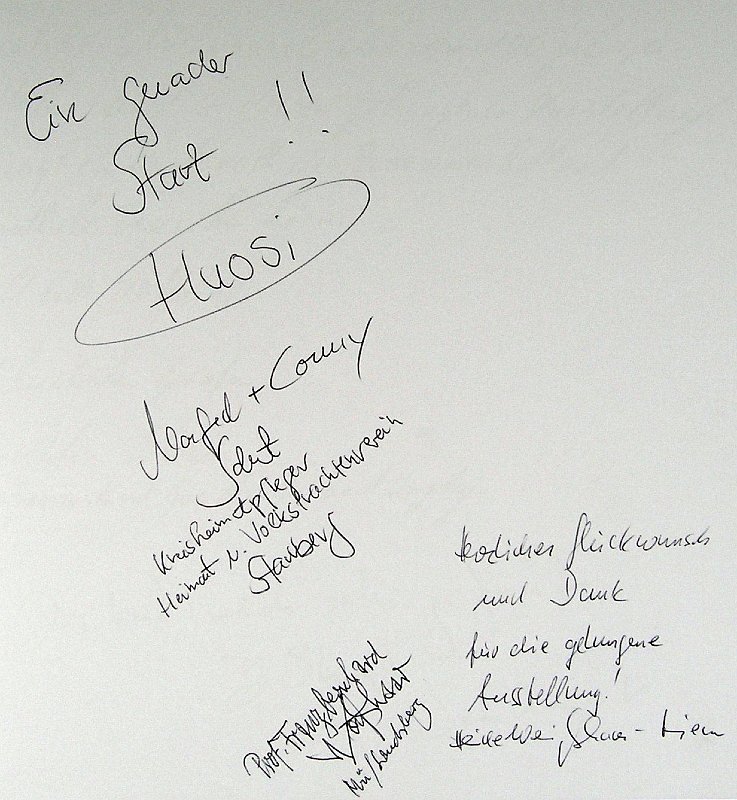 Ein gerader
Start !!
Huosi
Manfred + Conny
Kreisheimatpfleger
Heimat u. Volkstrachtenverein
Starnberg
Herzlichen Glückwunsch
und Dank
für die gelungene
Ausstellung!
Prof. Franz Bernhard